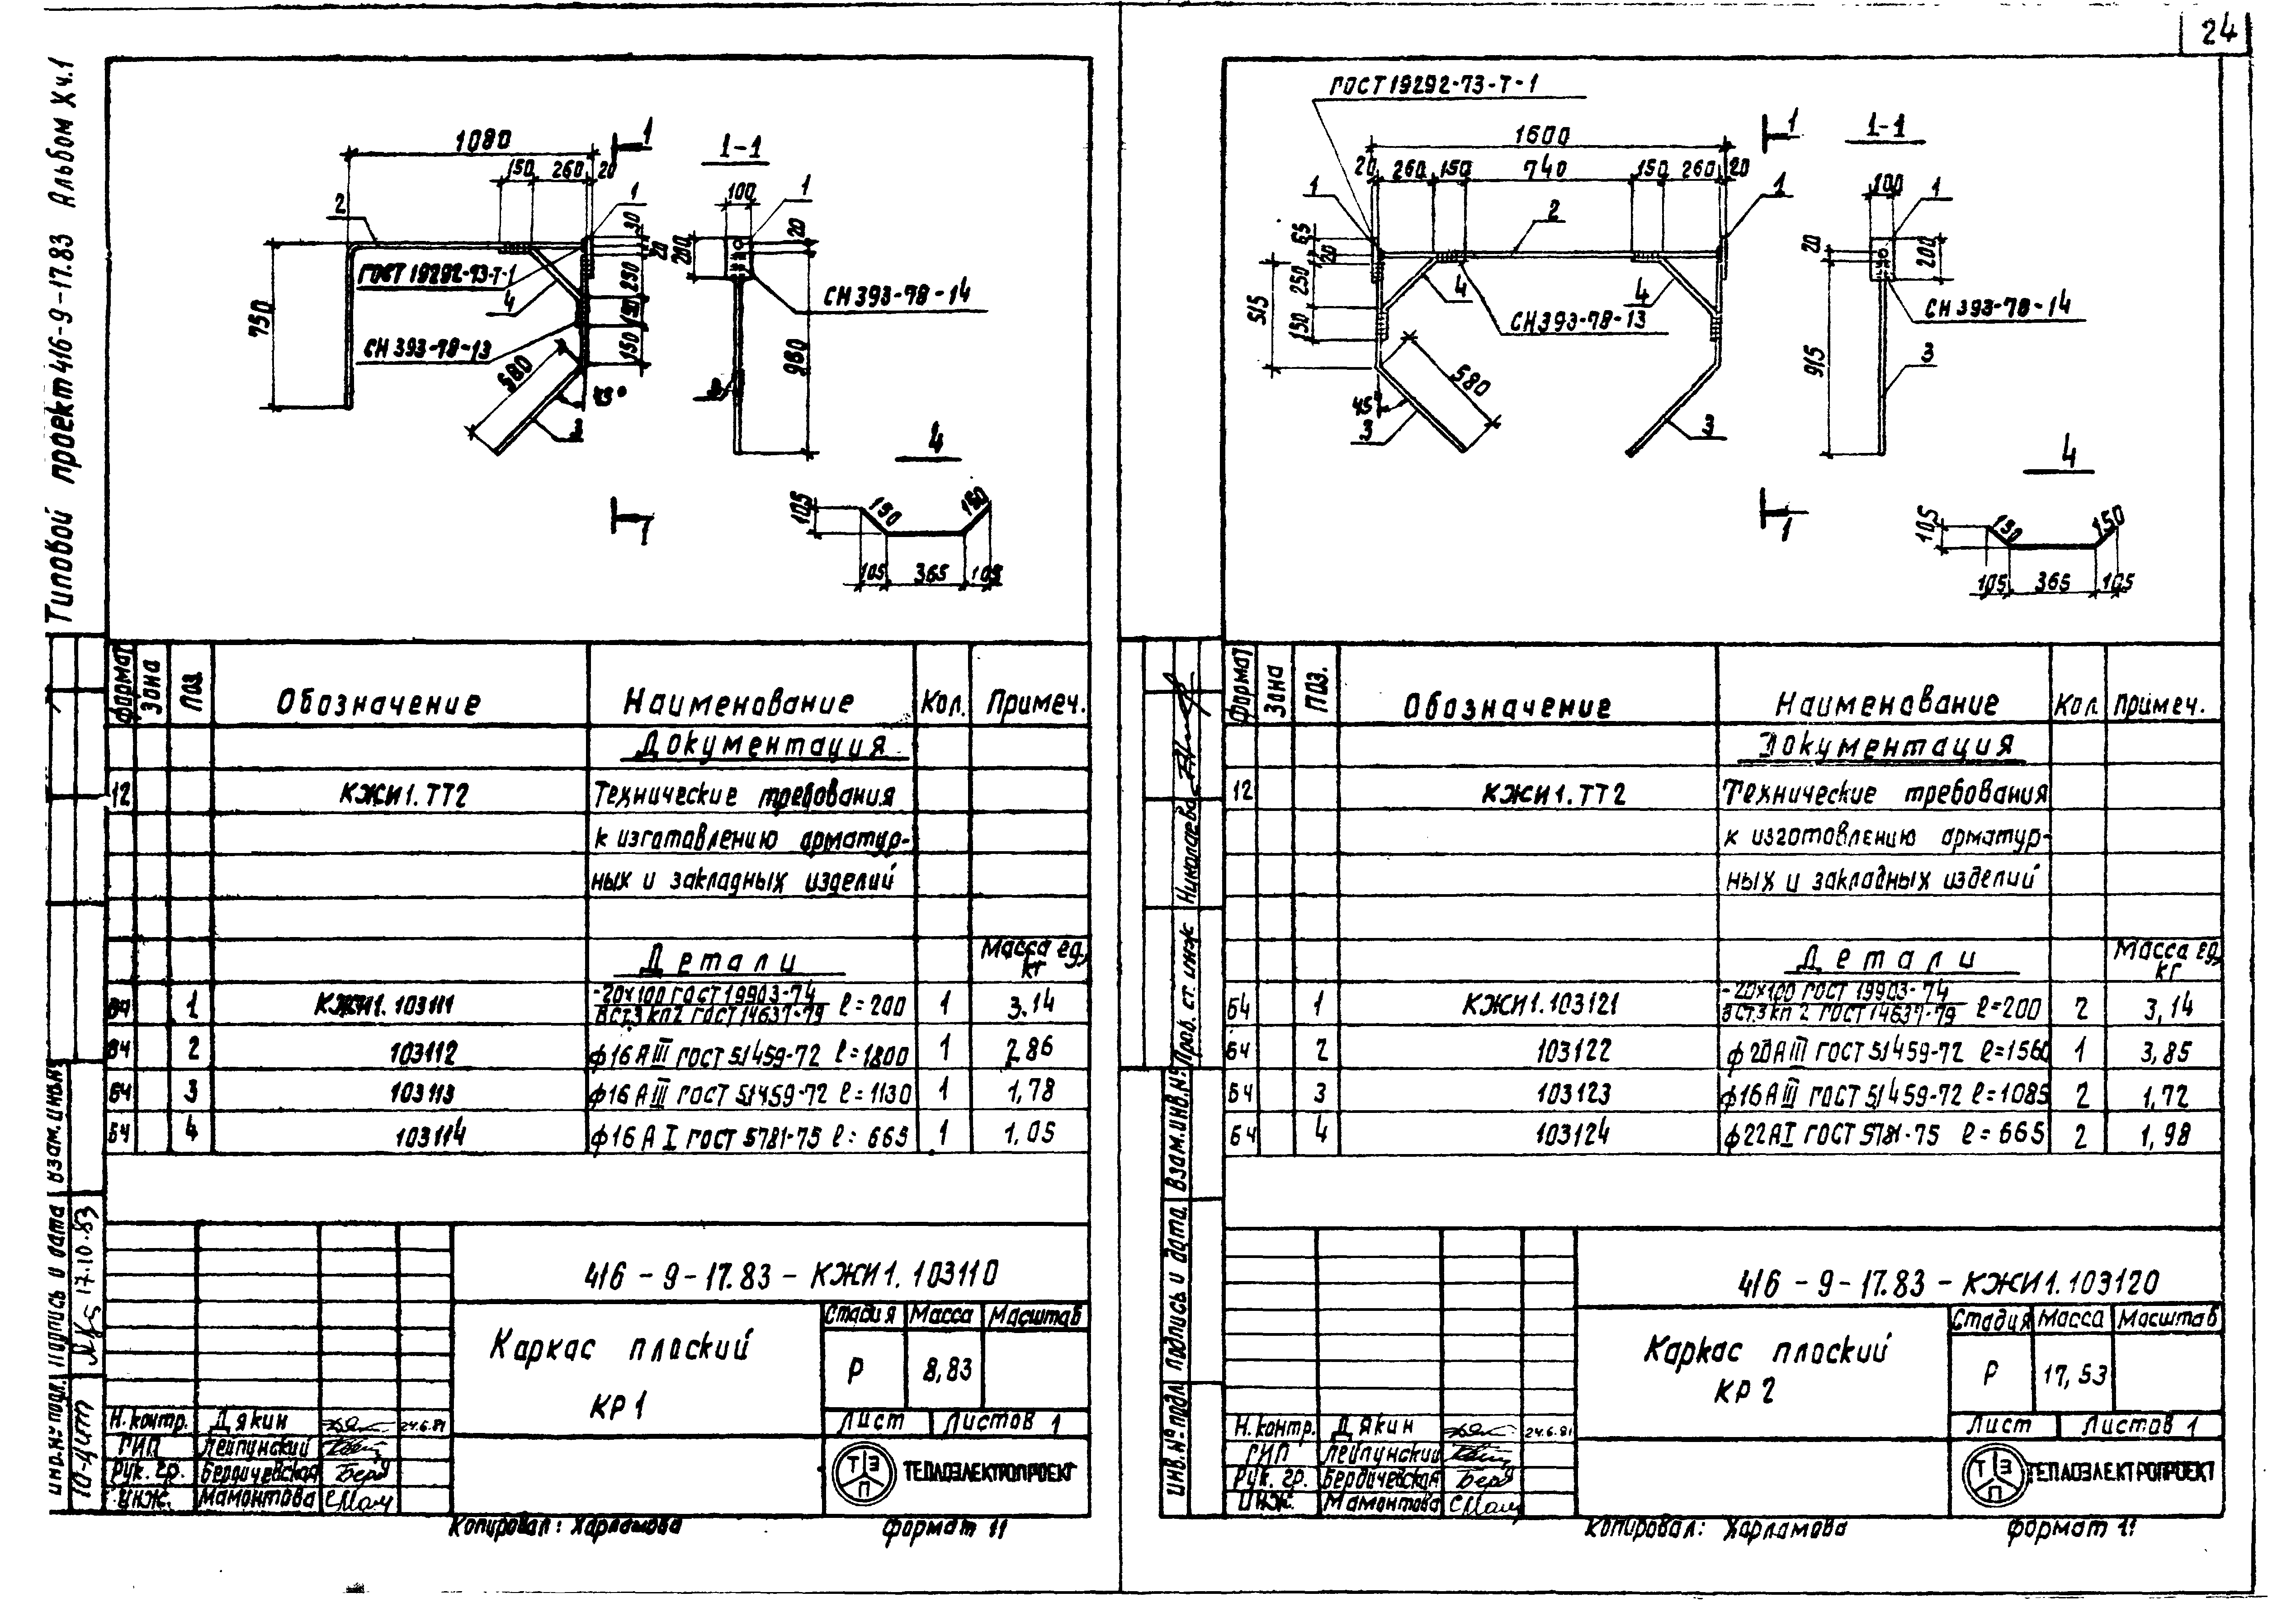 24
Типовой проект 416-9-17.83 Альбом Х ч.1
1080
1
1-1
150 260 20
100
1
1
2
30
20
20
200
250
150
150
750
ГОСТ 19292-73-Т-1
4
СН 393-78-14
СН 393-78-13
580
45°
3
980
4
1
105
150
150
105 365 105
Формат Зона Поз. Обозначение Наименование Кол. Примеч.
Документация
12 КЖИ1.ТТ2 Технические требования
к изготовлению арматур-
ных и закладных изделий
Детали Масса ед, кг
БЧ 1 КЖИ1.103111 -20х100 ГОСТ 19903-74 ВСт.3 кп2 ГОСТ 14637-79 ℓ=200 1 3,14
БЧ 2 103112 ф16 АIII ГОСТ 5.1459-72 ℓ=1800 1 2,86
БЧ 3 103113 ф16 АIII ГОСТ 5.1459-72 ℓ=1130 1 1,78
БЧ 4 103114 ф16 АI ГОСТ 5781-75 ℓ=665 1 1,05
416-9-17.83-КЖИ1.103110
Каркас плоский
КР1
Стадия Масса Масштаб
Р 8,83
Лист Листов 1
Т Э П ТЕПЛОЭЛЕКТРОПРОЕКТ
Н.контр. Дякин 24.6.81
ГИП Лейпунский
Рук. гр. Бердичевская
Инж. Мамонтова
Копировал: Харламова Формат 11
Инв.№ подл. Подпись и дата Взам.инв.№
17.10.83
ГОСТ 19292-73-Т-1
1600
1
1-1
20 260 150 740 150 260 20
100
1
1
1
2
65
20
250
150
515
4
4
СН 393-78-13
580
45°
3
3
20
200
915
СН 393-78-14
3
4
1
105
150
150
105 365 105
Формат Зона Поз. Обозначение Наименование Кол. Примеч.
Документация
12 КЖИ1.ТТ2 Технические требования
к изготовлению арматур-
ных и закладных изделий
Детали Масса ед, кг
БЧ 1 КЖИ1.103121 -20х100 ГОСТ 19903-74 ВСт.3 кп2 ГОСТ 14637-79 ℓ=200 2 3,14
БЧ 2 103122 ф20АIII ГОСТ 5.1459-72 ℓ=1560 1 3,85
БЧ 3 103123 ф16АIII ГОСТ 5.1459-72 ℓ=1085 2 1,72
БЧ 4 103124 ф22АI ГОСТ 5781-75 ℓ=665 2 1,98
416-9-17.83-КЖИ1.103120
Каркас плоский
КР2
Стадия Масса Масштаб
Р 17,53
Лист Листов 1
Т Э П ТЕПЛОЭЛЕКТРОПРОЕКТ
Н.контр. Дякин 24.6.81
ГИП Лейпунский
Рук. гр. Бердичевская
Инж. Мамонтова
Копировал: Харламова Формат 11
Инв.№ подл. Подпись и дата Взам.инв.№
Пров. ст. инж Николаева